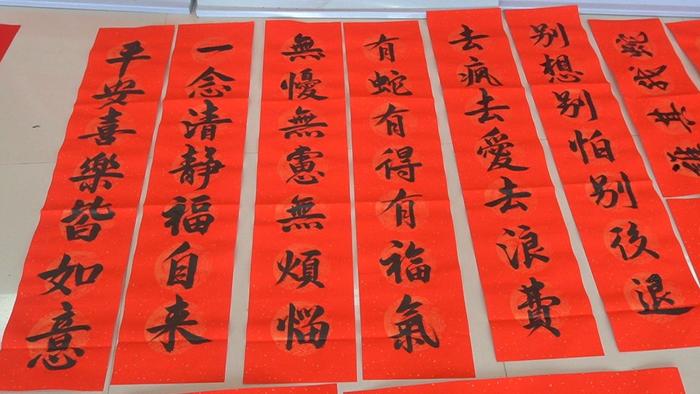 蛇我其誰
别想别怕别後退
去疯去愛去浪費
有蛇有得有福氣
無懮無慮無煩惱
一念清静福自来
平安喜樂皆如意